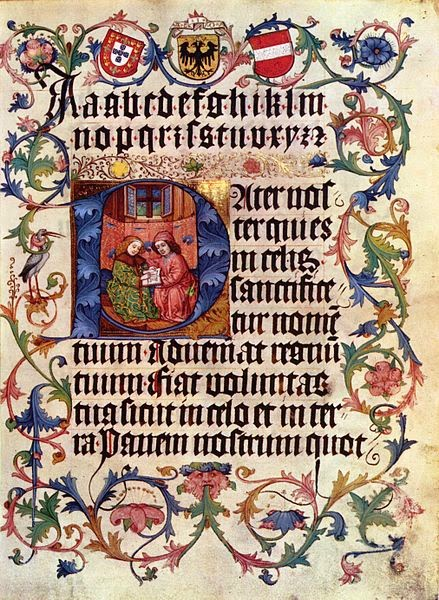 A a a b c d e f g h i k l m
n o p q r r ſ s t u v x y z z
Pater nos
ter qui es
in celis
sanctifice
tur nomē
tuum Adueniat regnū
tuum fiat voluntas
tua sicut in celo et in ter
ra Panem nostrum quot